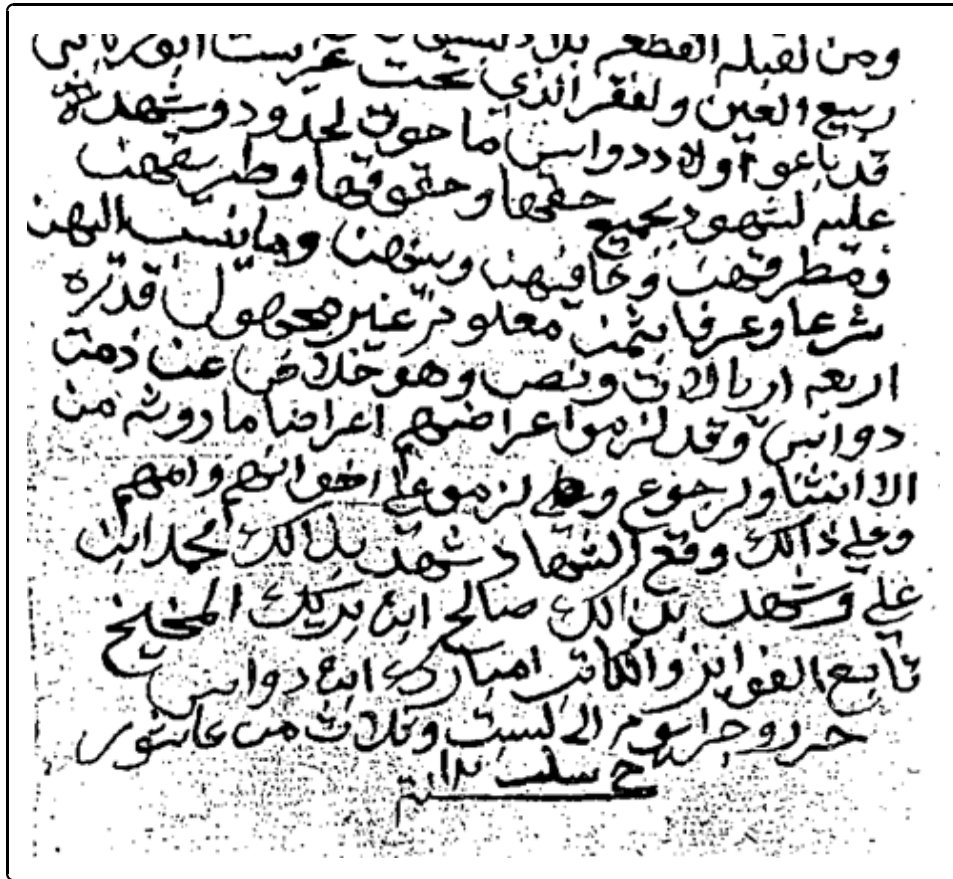 ومن لقبله القطعه بلاد
ربيع العين ولفقر الذي تحت
قد باعو اولاد دواس ما حوت لحدود وشهدة
عليه لشهود بجميع حقها وحقوقها وطريقهن
ومطرقهن وحافيهن وبينهن وما ينسب الهن
شرعا وعرفا بثمن معلوم غير مجهول قدره
اربعه اريالات ونص وهو خلاص عن ذمت
دواس وقد لزموا عراضهم اعراضا مادونه من
الا انثنا ولرجوع ولزمو على اخوانهم وامهم
وعلى ذالك وقع الشهاد شهد بذالك محمد ابن
علي وشهد بذالك صالح ابن بريك المخليخ
تابع الفوايز والكاتب امبارك ابن دواس
حرر وجرا يوم الى لست وثلاث من عاشور